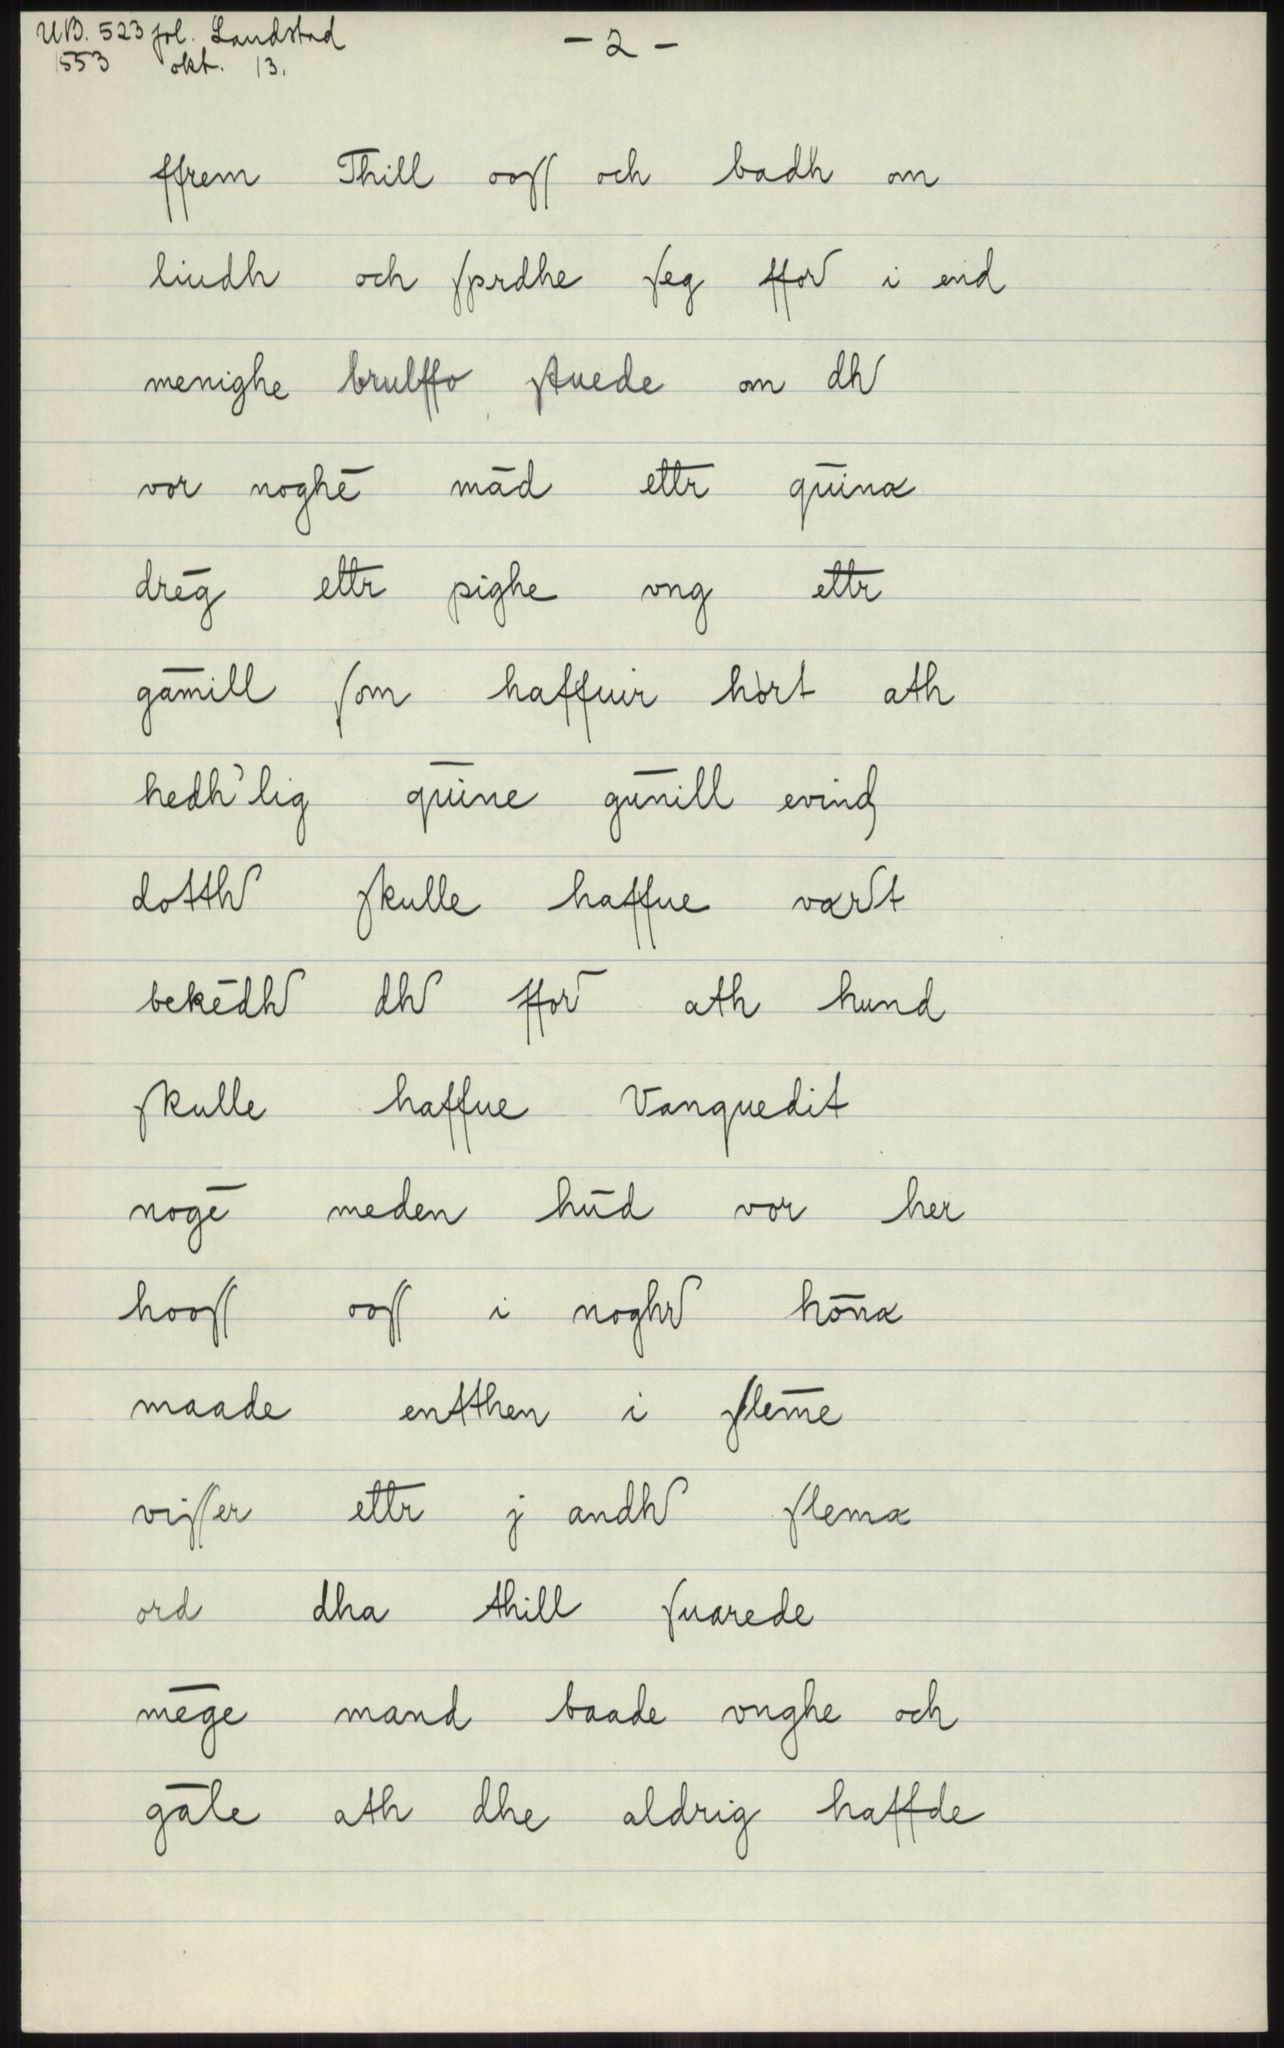 UB. 523 fol. Landstad
- 2 -
1553 okt. 13.
ffrem Thill ooſſ och badh om
liudh och ſprdhe ſeg ffor i end
menighe brulffo ſtuede om dh
vor noghē mād ettr̄ qūinα
drēg ettr̄ pighe vng ettr̄
gām̄ill ſom haffuir hòrt ath
hedh'lig qūine gūnill evind
dotth ſkulle haffue vαrt
bekēdh dh ffor̄ ath hund
ſkulle haffue Vanquedit
nogē meden hūd vor her
hooſſ ooſſ i noghr hōnα
maade entthen i ſlem̄e
viſſer ettr̄ j andh ſlemα
ord dha thill ſuarede
mēge mand baade vnghe och
gāle ath dhe aldrig haffde